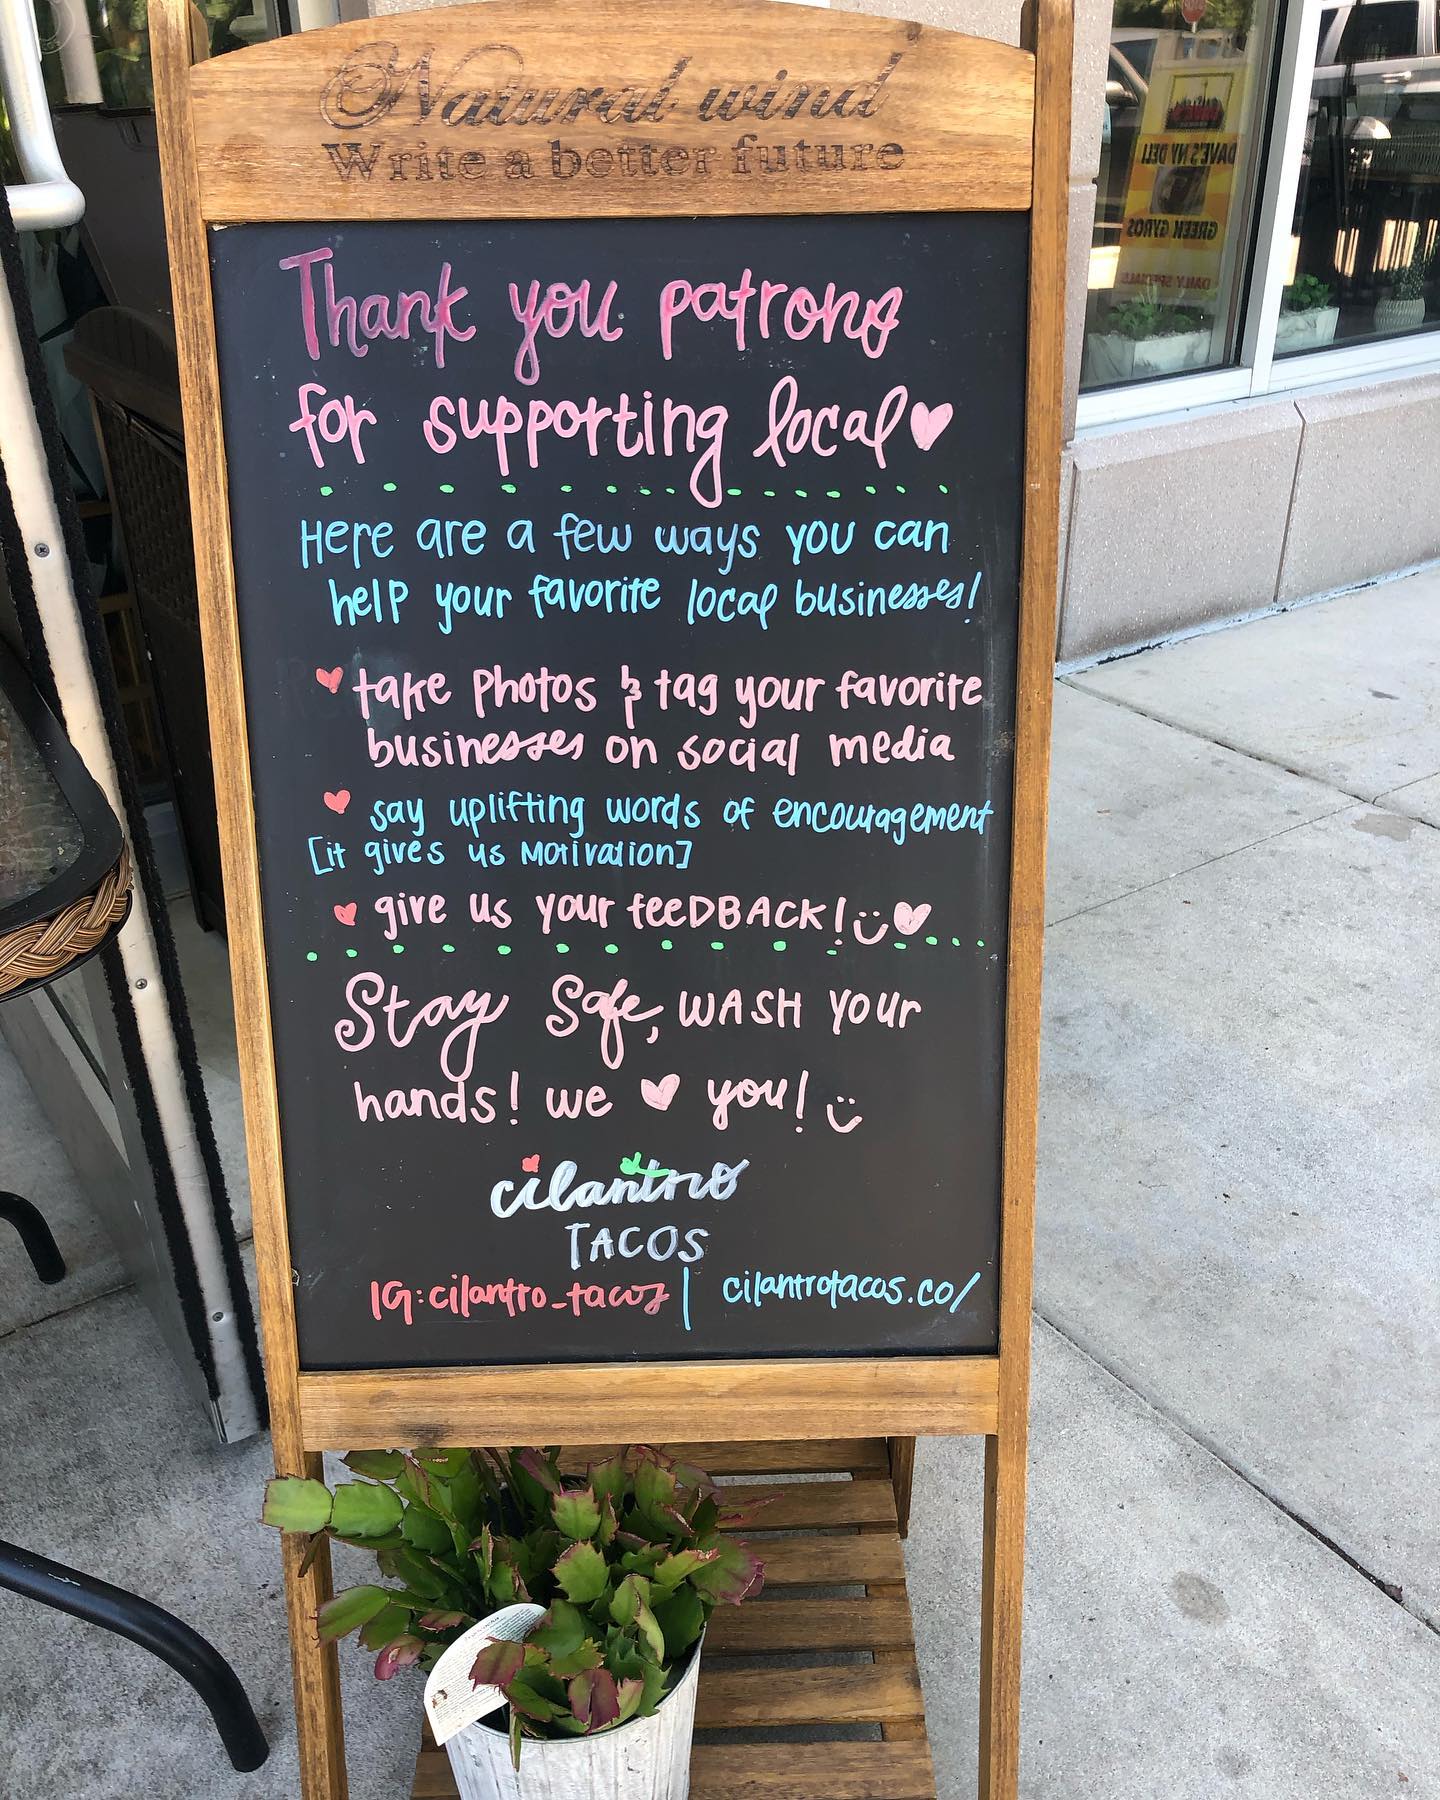 Natural wind
Write a better future
Thank you patrons
for supporting local
Here are a few ways you can
help your favorite local businesses!
take photos & tag your favorite
businesses on social media
say uplifting words of encouragement
[it gives us Motivation]
give us your feeDBACK!
Stay Safe, WASH Your
hands! we ♥ you!
cilantro
TACOS
IG:cilantro_tacos | cilantrotacos.co/
DAVE'S NY DELI
GREEK GYROS
DAILY SPECIALS